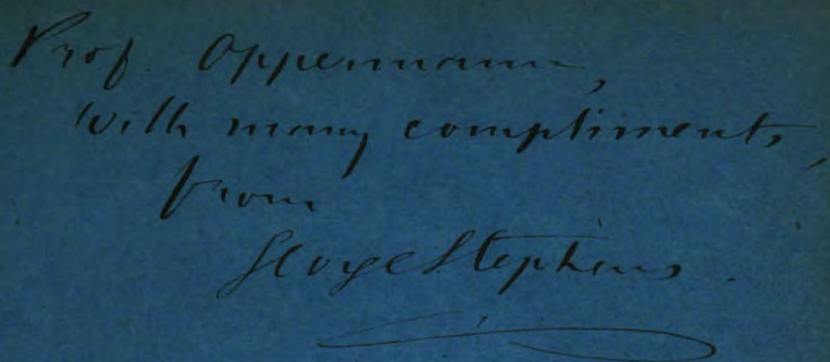 Prof. Oppermann,
With many compliments,
from
George Stephens.